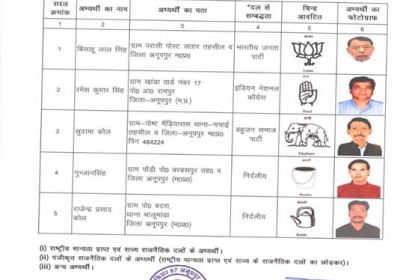 सरल क्रमांक अभ्यर्थी का नाम अभ्यर्थी का पता *दल से सम्बद्धता चिन्ह आवंटित अभ्यर्थी का फोटोग्राफ
1 2 3 4 5 6
1 बिसाहू लाल सिंह ग्राम परासी पोस्ट लतार तहसील व जिला अनूपपुर म०प्र० भारतीय जनता पार्टी Lotus
2 रमेश कुमार सिंह ग्राम खांडा वार्ड नंबर 17 पो० आ० रामपुर जिला–अनूपपुर (म.प्र.) इंडियन नेशनल काँग्रेस Hand
3 सुदामा कोल ग्राम–पोष्ट मेड़ियारास थाना–चचाई तहसील व जिला अनूपपुर म०प्र० पिन 484224 बहुजन समाज पार्टी Elephant
4 गुन्जानसिंह ग्राम पोंड़ी पो० बरबसपुर तह० व जिला अनूपपुर (म०प्र०) निर्दलीय Bucket
5 राजेन्द्र प्रसाद कोल ग्राम पो० बदरा, थाना भालूमाडा जिला अनूपपुर (म०प्र०) निर्दलीय Kettle
(i) राष्ट्रीय मान्यता प्राप्त एवं राज्य राजनैतिक दलों के अभ्यर्थी।
(ii) पंजीकृत राजनैतिक दलों के अभ्यर्थी (राष्ट्रीय मान्यता प्राप्त एवं राज्य राजनैतिक दलों का छोडकर)।
(iii) अन्य अभ्यर्थी।
87 अनूपपुर